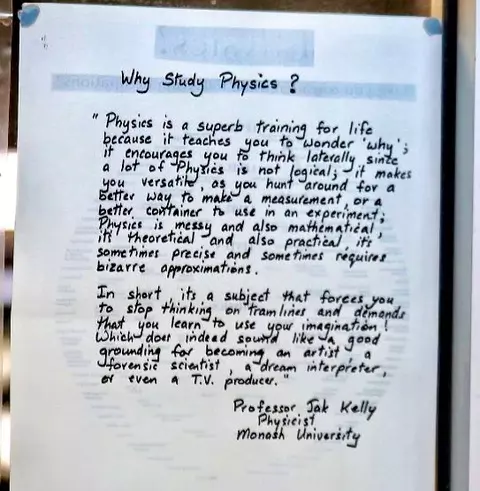 Why Study Physics?
"Physics is a superb training for life
because it teaches you to wonder 'why';
it encourages you to think laterally since
a lot of Physics is not logical; it makes
you versatile, as you hunt around for a
better way to make a measurement, or a
better container to use in an experiment;
Physics is messy and also mathematical,
it's theoretical and also practical, it's
sometimes precise and sometimes requires
bizarre approximations.
In short, it's a subject that forces you
to stop thinking on tramlines and demands
that you learn to use your imagination!
Which does indeed sound like a good
grounding for becoming an artist, a
forensic scientist, a dream interpreter,
or even a T.V. producer."
Professor Jak Kelly
Physicist
Monash University